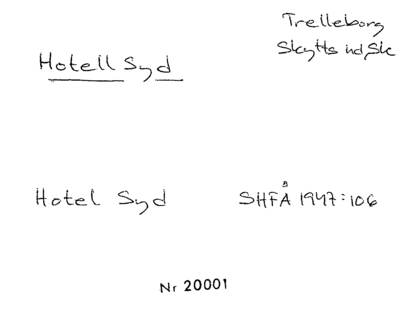 Trelleborg
Skytts hd, Sk
Hotell Syd
Hotel Syd
SHFÅ 1947:106
Nr 20001